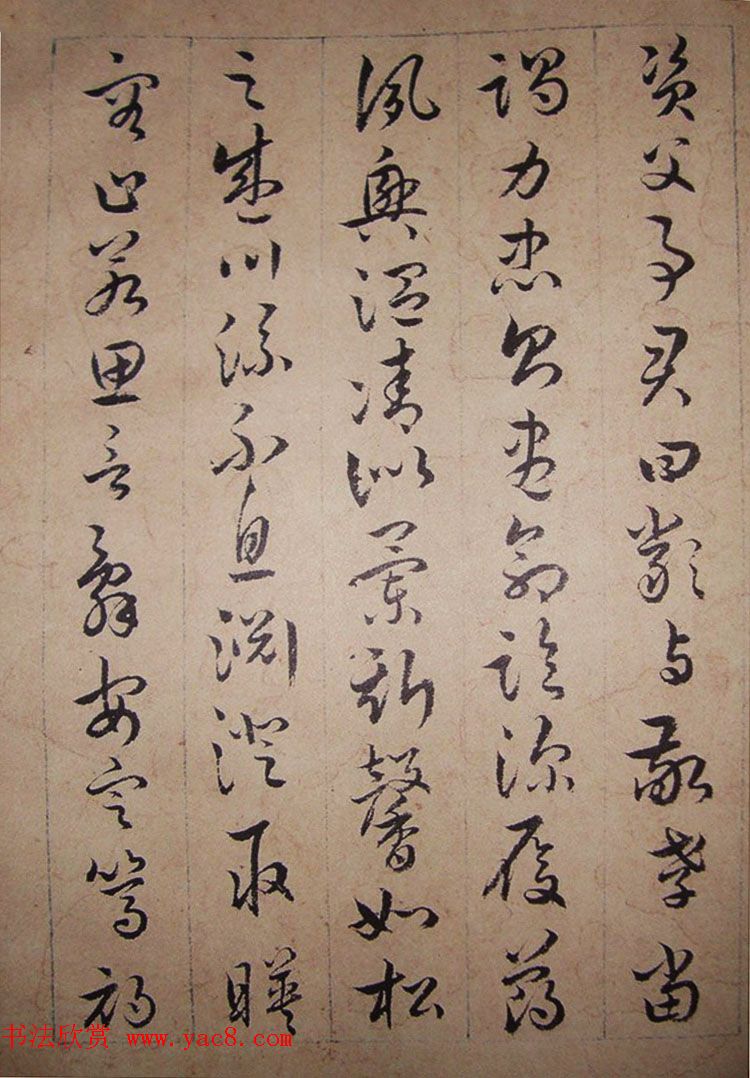 資父事君曰嚴与敬孝當
竭力忠則盡命臨深履薄
夙興溫凊似蘭斯馨如松
之盛川流不息淵澄取暎
容止若思言辭安定篤初
书法欣赏 www.yac8.com